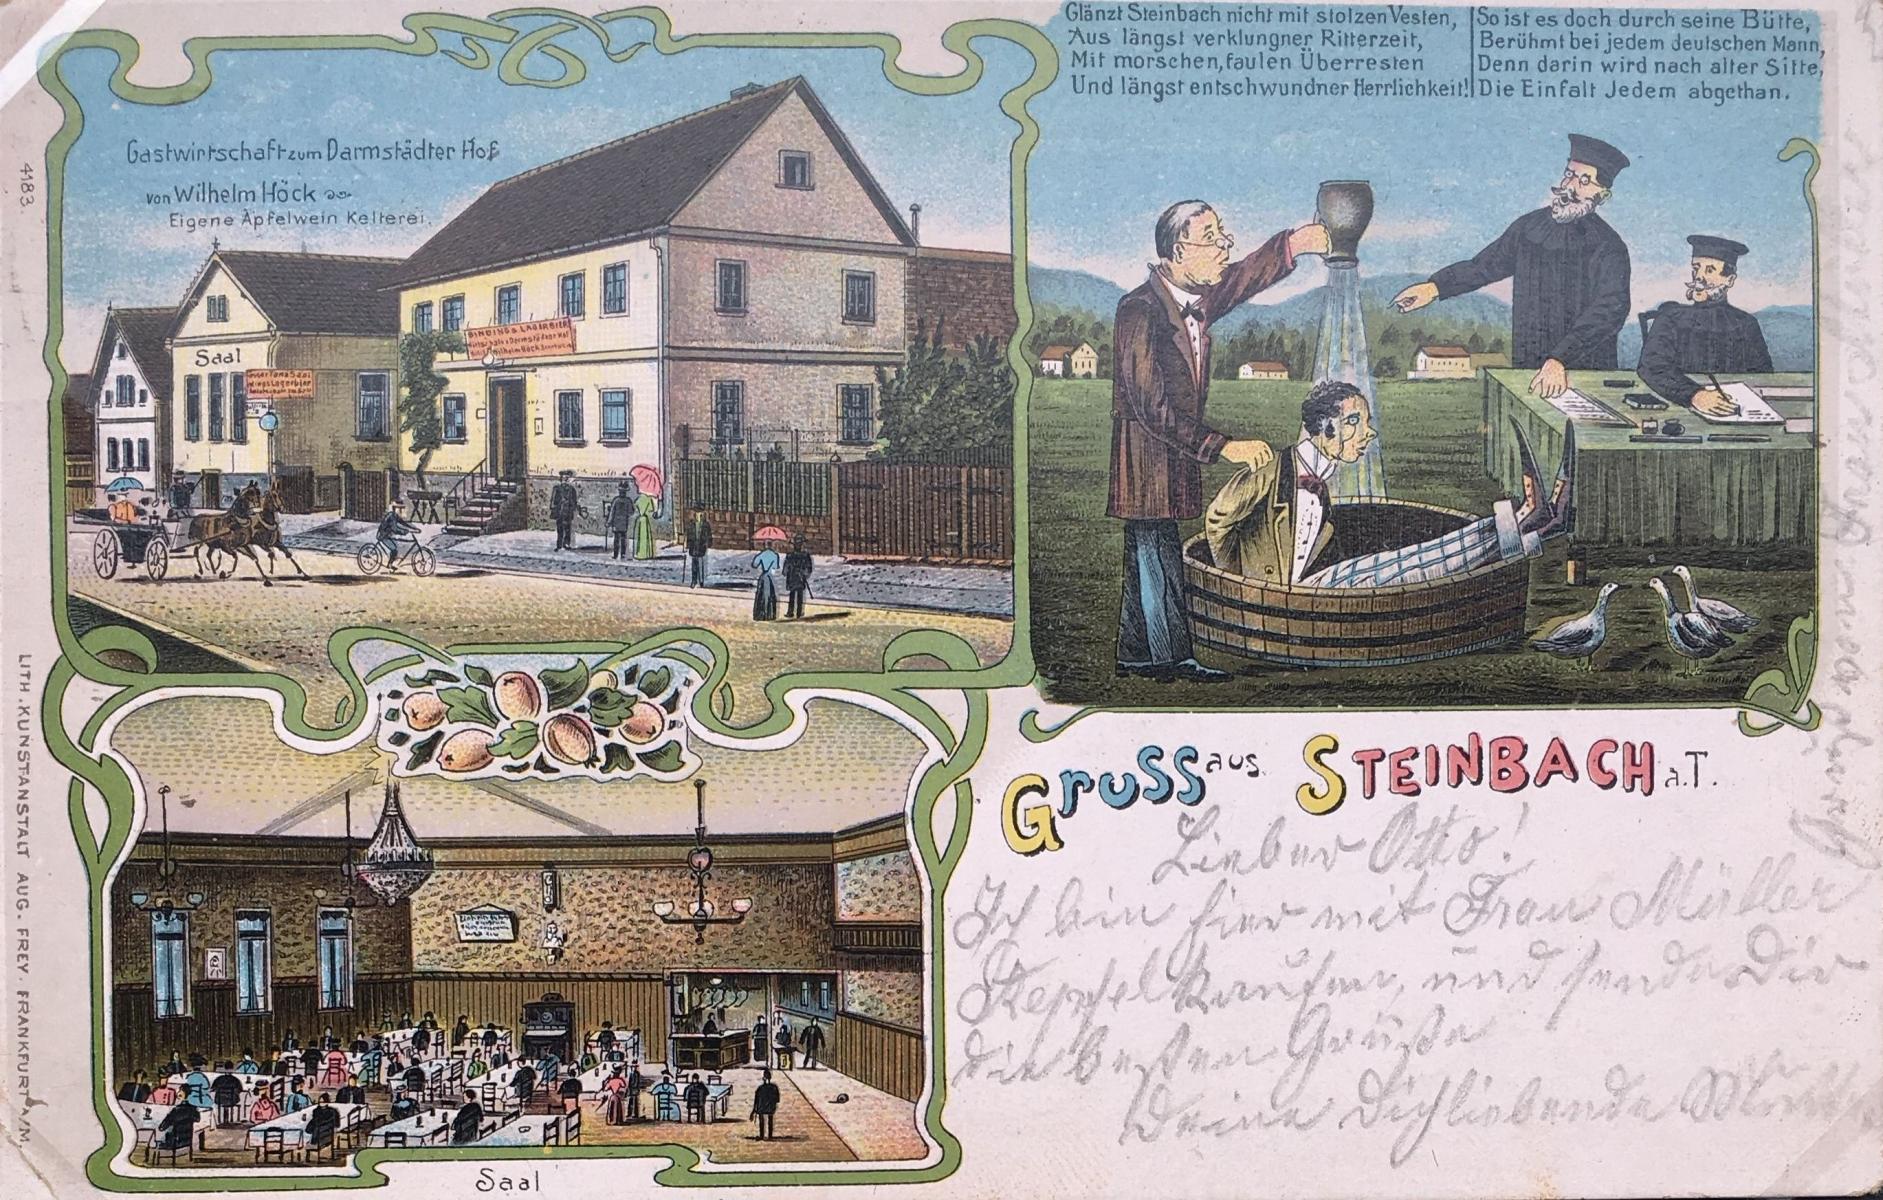 Glänzt Steinbach nicht mit stolzen Vesten,
Aus längst verklungner Ritterzeit,
Mit morschen, faulen Überresten
Und längst entschwundner Herrlichkeit!
So ist es doch durch seine Bütte,
Berühmt bei jedem deutschen Mann,
Denn darin wird nach alter Sitte,
Die Einfalt Jedem abgethan.
Gastwirtschaft zum Darmstädter Hof
von Wilhelm Höck
Eigene Äpfelwein Kelterei.
BINDINGS LAGERBIER
Wilhelm Höck
Saal
Lagerbier
4183.
LITH. KUNSTANSTALT AUG. FREY. FRANKFURT A/M.
Saal
Gruss aus STEINBACH a.T.
Lieber Otto!
Ich bin hier mit Frau Müller
Aepfel kaufen, und sende Dir
die besten Grüße
Deine Dichliebende